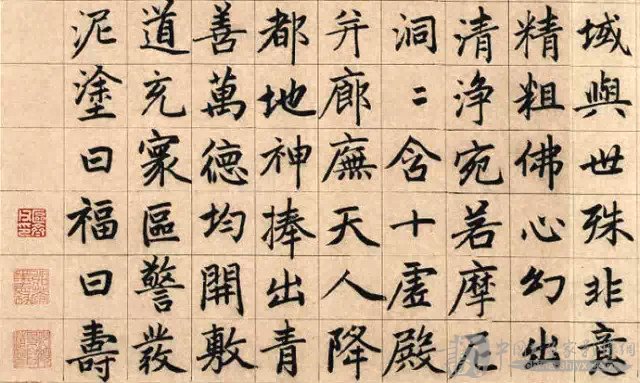 域與世殊非意
精粗佛心幻出
清净宛若摩尼
洞〻含十虛殿
并廊廡天人降
都地神捧出青
善萬德均開敷
道充寰區警發
泥塗曰福曰壽